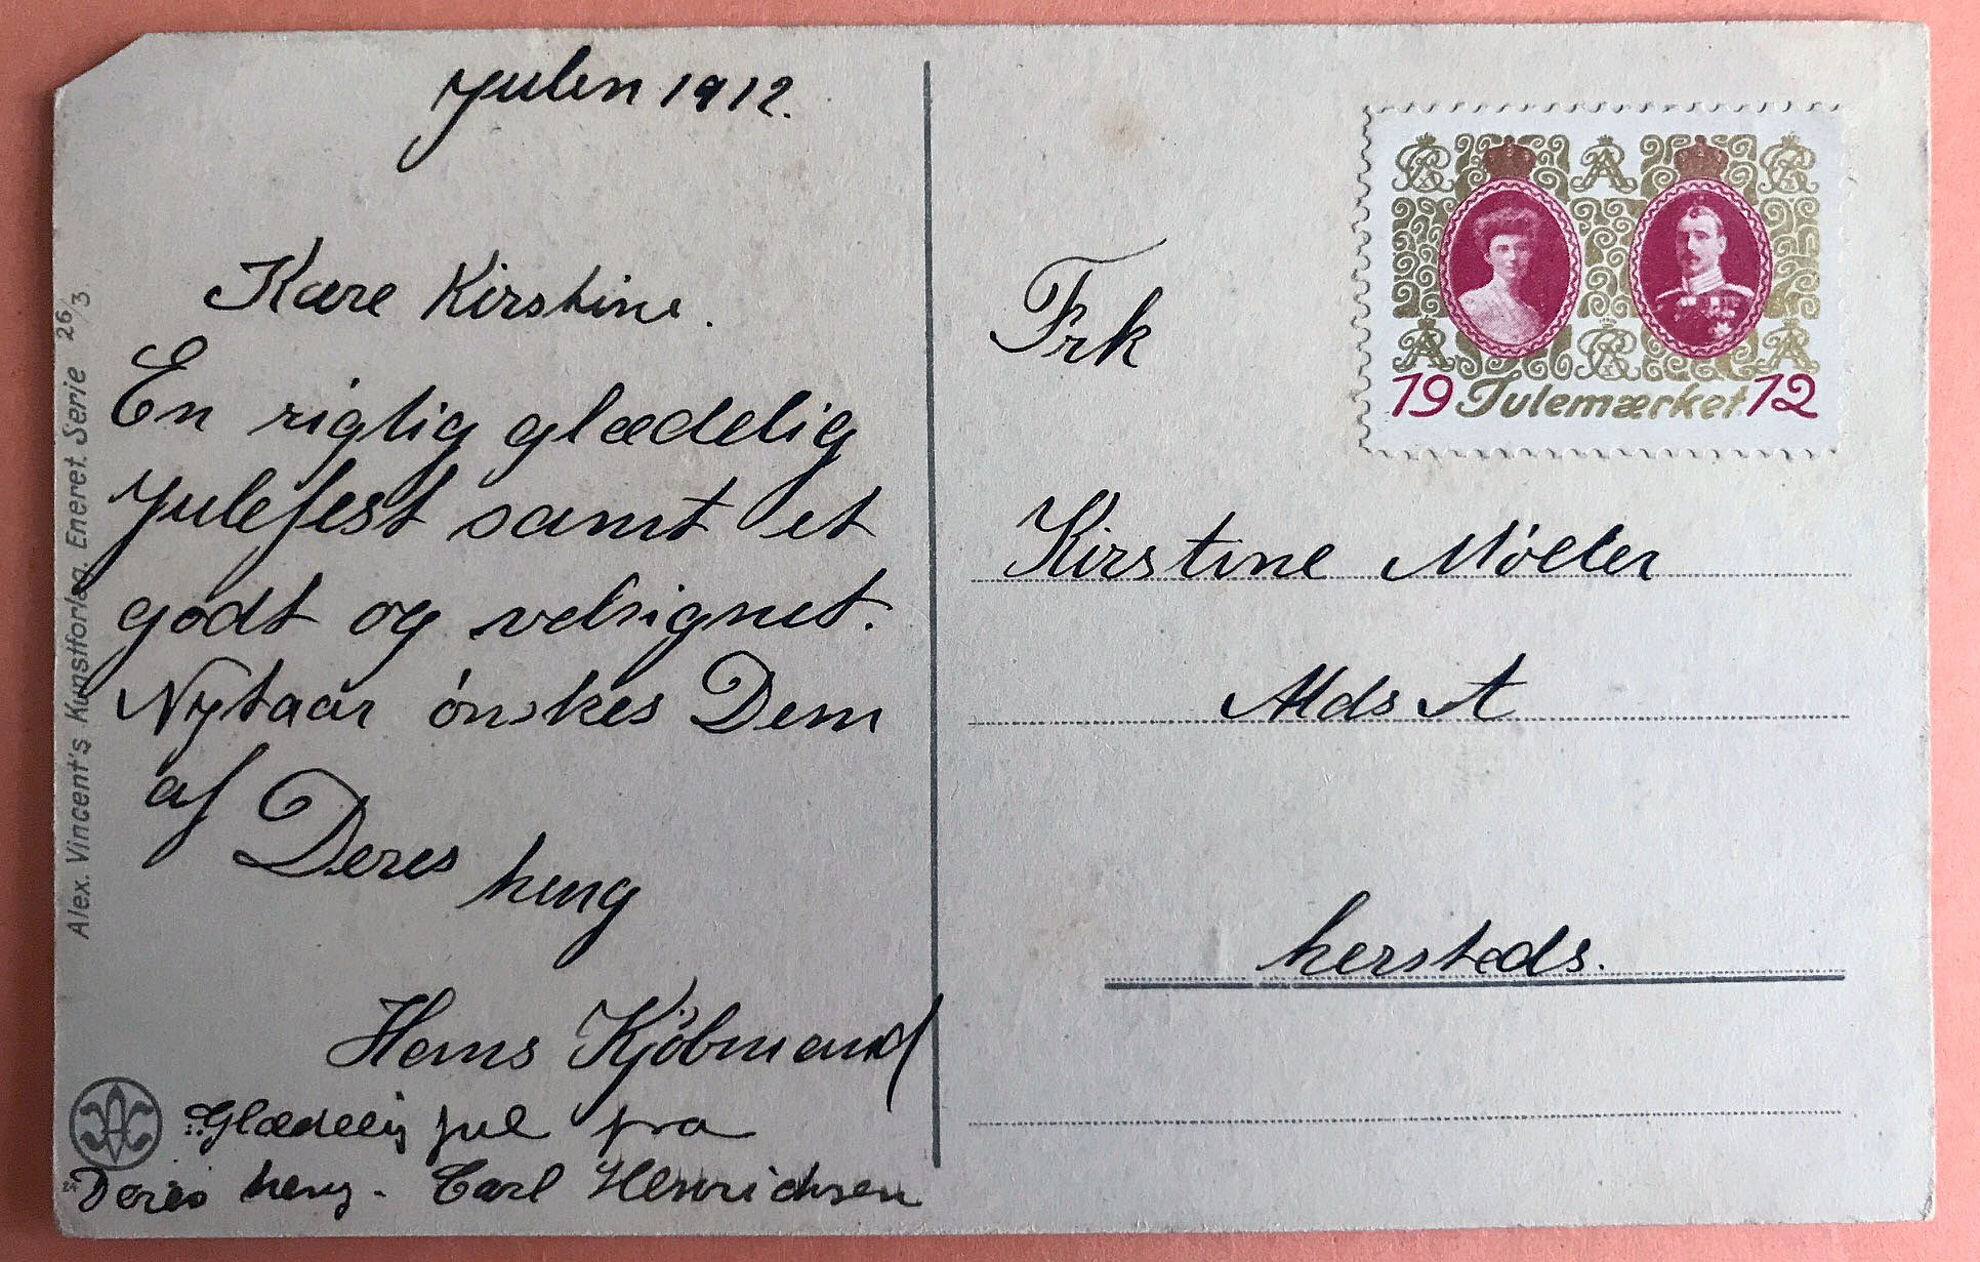 Julen 1912.
Kære Kirstine.
En rigtig glædelig
Julefest samt et
godt og velsignet.
Nytaar önskes Dem
af Deres heng
Hans Kjöbmand
Glædelig jul fra
Deres heng. Carl Henrichsen
Alex. Vincent's Kunstforlag. Eneret. Serie 26/3.
19 Julemærket 12
Frk
Kirstine Möller
Alds A
hersteds.